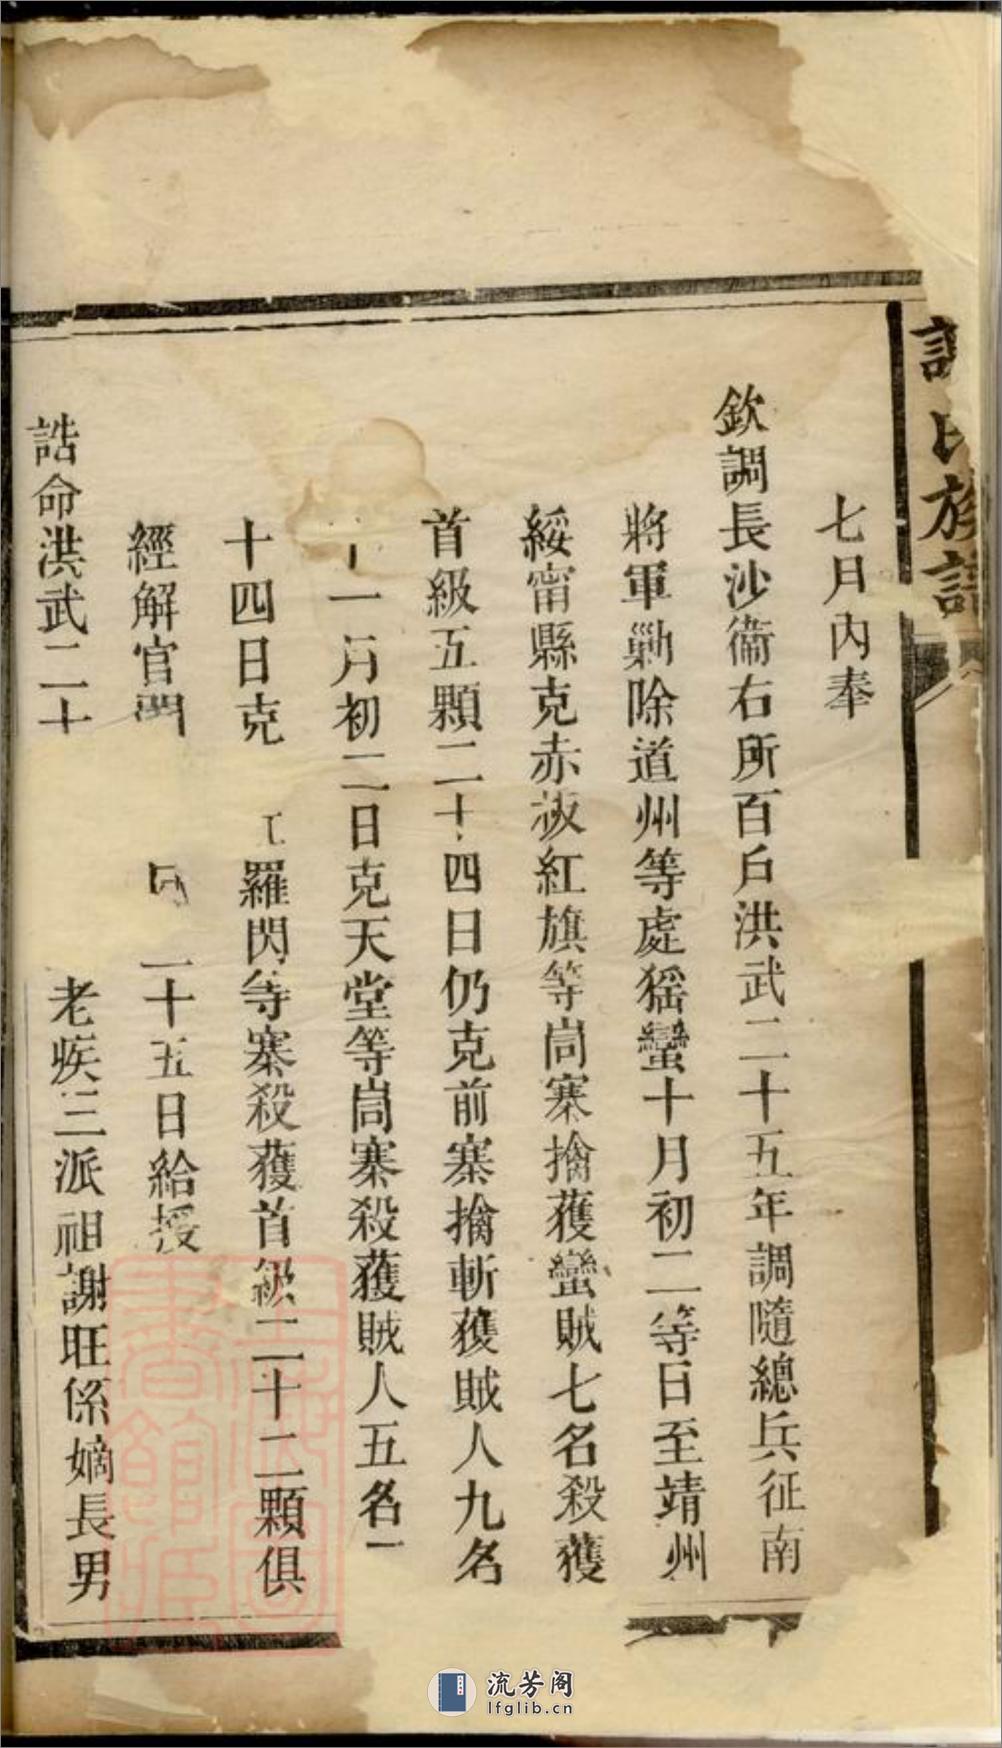 氏族譜
七月內奉
欽調長沙衞右所百戶洪武二十五年調隨總兵征南
將軍剿除道州等處猺蠻十月初二等日至靖州
綏甯縣克赤板紅旗等峝寨擒獲蠻賊七名殺獲
首級五顆二十四日仍克前寨擒斬獲賊人九名
十一月初二日克天堂等峝寨殺獲賊人五名
十四日克羅閃等寨殺獲首級二十二顆俱
經解官二十五日給授
誥命洪武二十老疾三派祖謝旺係嫡長男
流芳阁
lfglib.cn